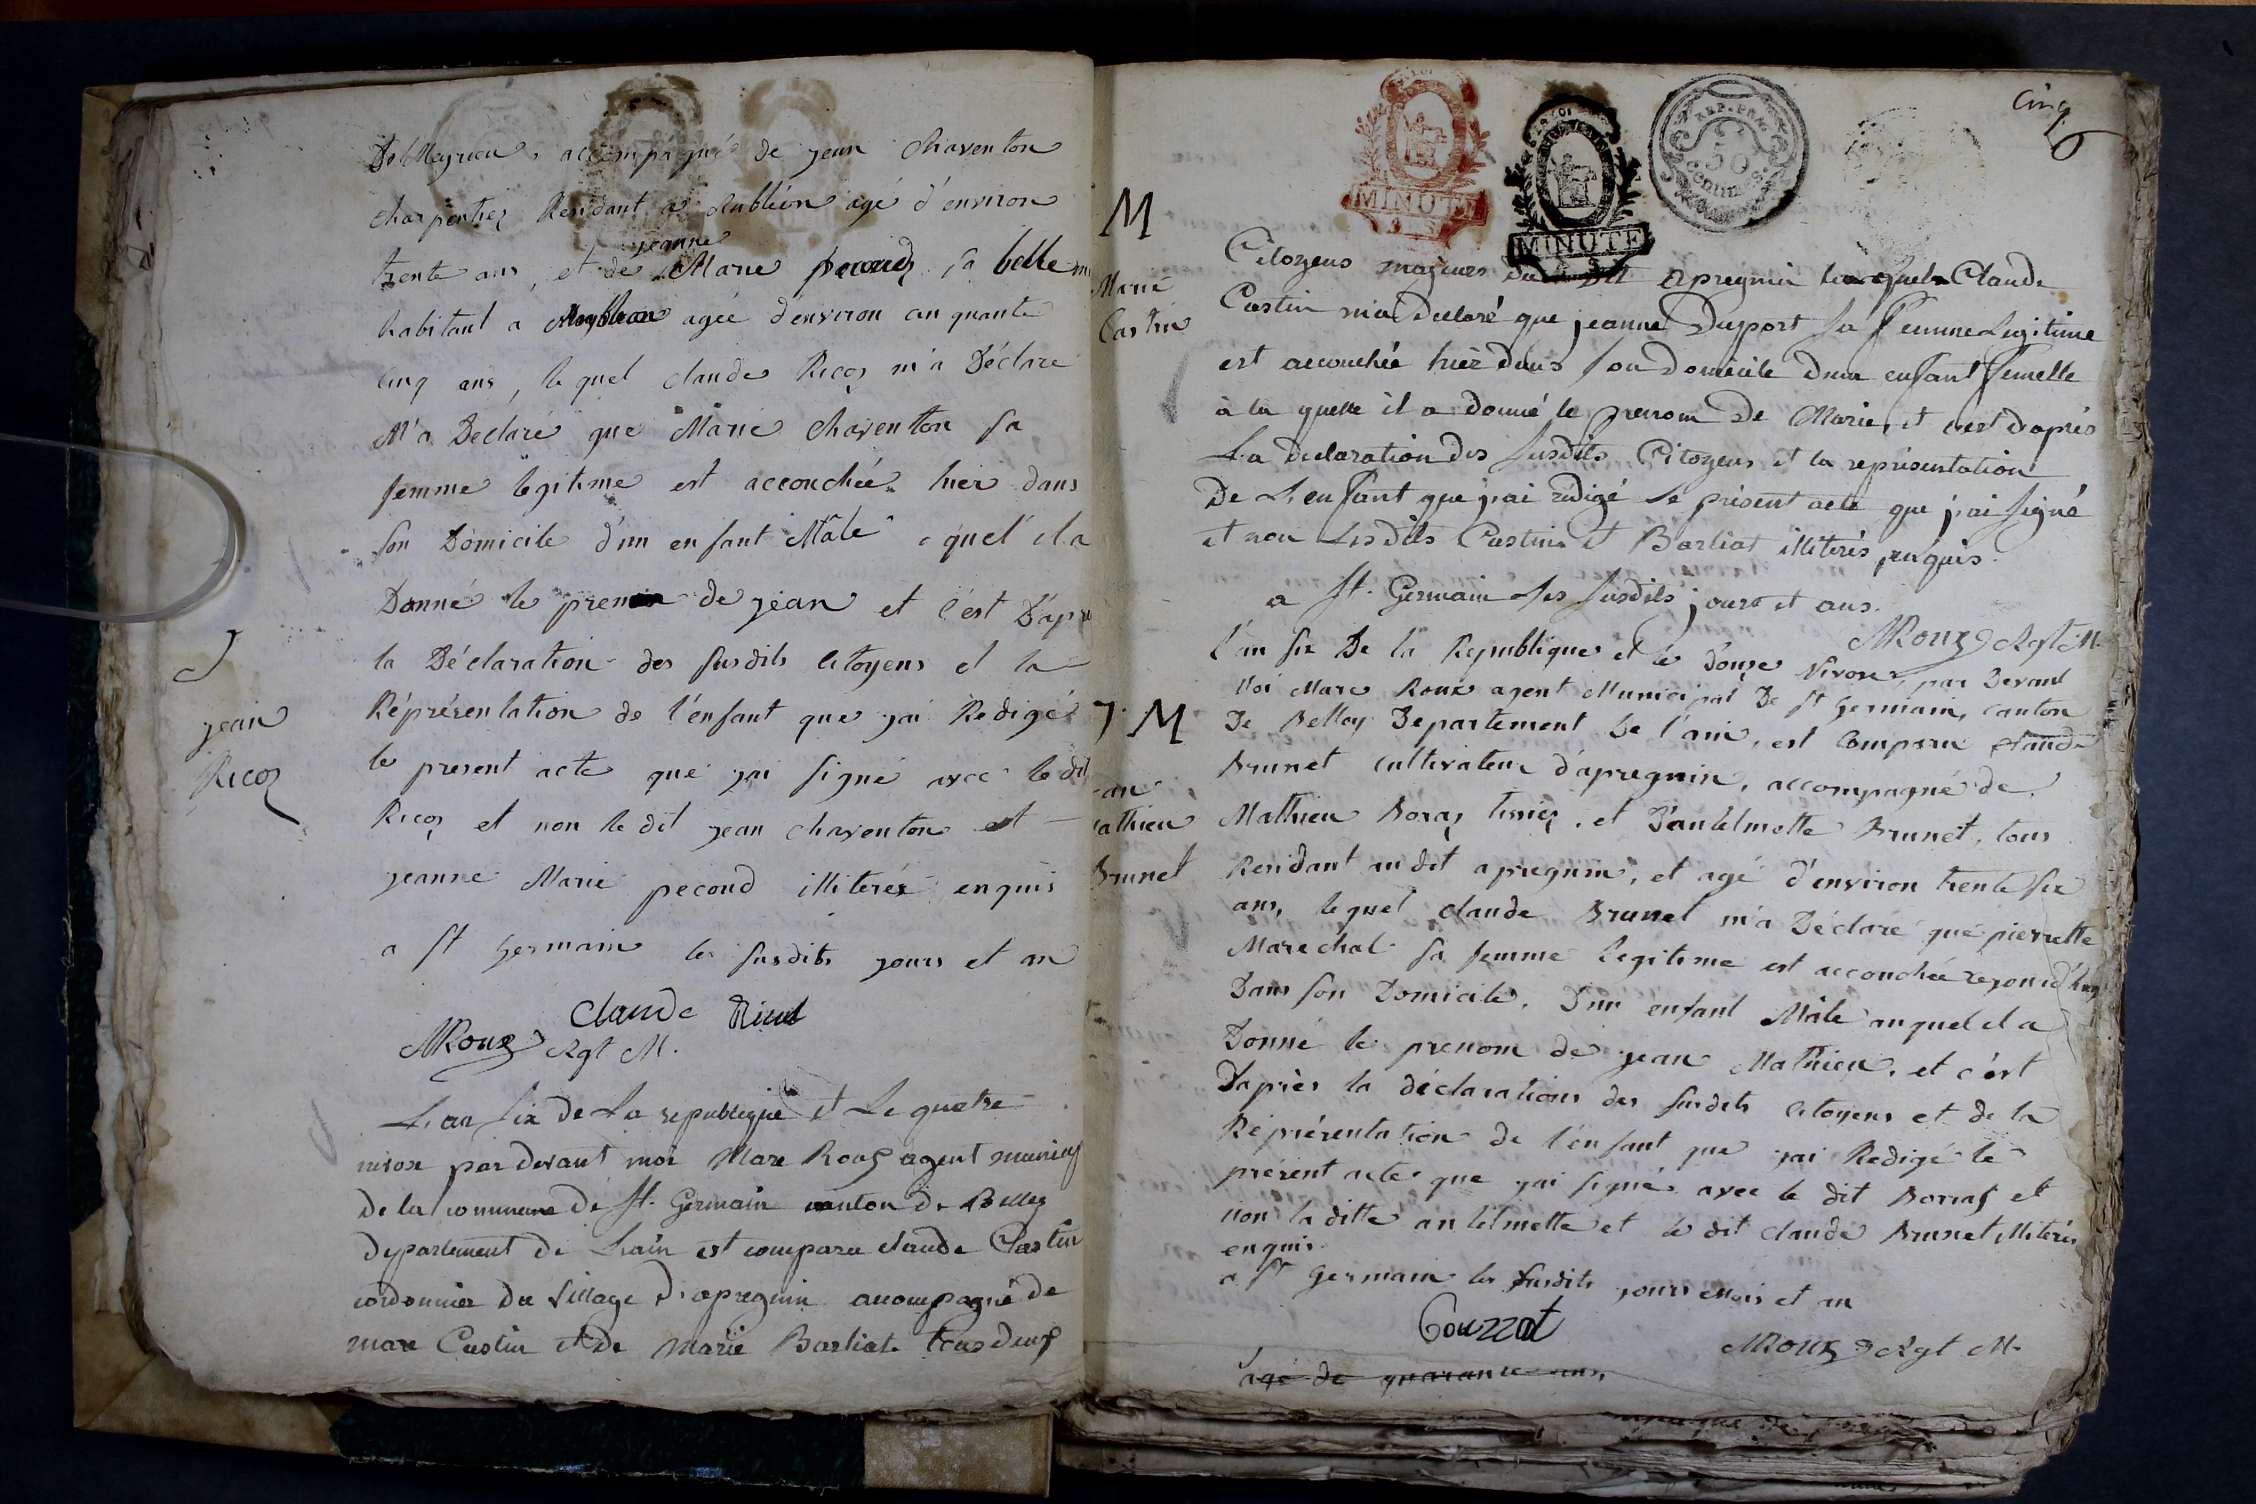 De Meyrieu, accompagné de jean Chaventon
charpentier Residant a aublion agé d'environ
trente ans, et de jeanne Marie pecoud, sa belle
habitant a agée d'environ cinquante
cinq ans, lequel claude Ricoz m'a Déclare
M'a Declaré que Marie Chaventon sa
femme legitime est accouchée hier dans
son Domicile d'un enfant Mâle quel il a
Donné le prenom de jean et c'est D'apr
la Déclaration des susdits citoyens et la
Répréséntation de l'énfant que jai Redigé
le present acte que jai signé avec le dit
Ricoz et non le dit jean chaventon et
jeanne Marie pecond illiterés enquis
a st Germain les susdits jours et an
J
jean
Ricoz
claude Ricol
MRoux Agt M.
L'an six de La republique et Le quatre
nivose par devant moi Marc Roux agent municip
de la commune de St. Germain canton de Belley
departement de Lain est comparu claude Castin
cordonnier du village d'apregnin acompagné de
marc Castin et de Marie Barliat tous deux
Cinq
MINUTE
MINUTE
REP. FRA.
50
centimes
M
Marie
Castin
Citoyens majeurs du dit apregnin lequel Claude
Castin m'a declaré que jeanne Duport sa femme Legitime
est accouchée hièr dans son domicile d'un enfant femelle
à la quelle il a donné le prenom De Marie, et c'est d'après
La declaration des susdits Citoyens et la représentation
De L'enfant que j'ai rédigé Le présent acte que j'ai signé
et non Lesdits Castin et Barliat illiterés enquis.
a St. Germain Les susdits jours et ans.
MRoux Agt M.
7. M
jean
Mathieu
Brunet
l'an six De la Republique et le douze Nivose, par Devant
Moi Marc Roux agent Municipal De St Germain, canton
De Belley Departement De l'ain, est comparu claude
Brunet cultivateur d'apregnin, accompagné de
Mathieu Boraz tissier, et D'antelmette Brunet, tous
Residant au dit apregnin, et agé d'environ trente six
ans, lequel claude Brunet m'a Déclaré que pierrette
Marechal sa femme legitime est accouchée
Dans son Domicile, D'un enfant Mâle auquel il a
Donné le prenom de jean Mathieu, et c'est
D'après la déclarations des susdits citoyens et de la
Répréséntation de l'énfant que jai Redigé le
présent acte que jai signé avec le dit et
non la ditte antelmette et le dit claude Brunet illiterés
enquis.
a St Germain les susdits jours mois et an
MRoux Agt M.
agé de quarante ans,